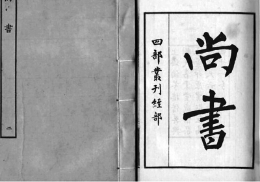 尚書
四部叢刊經部
書